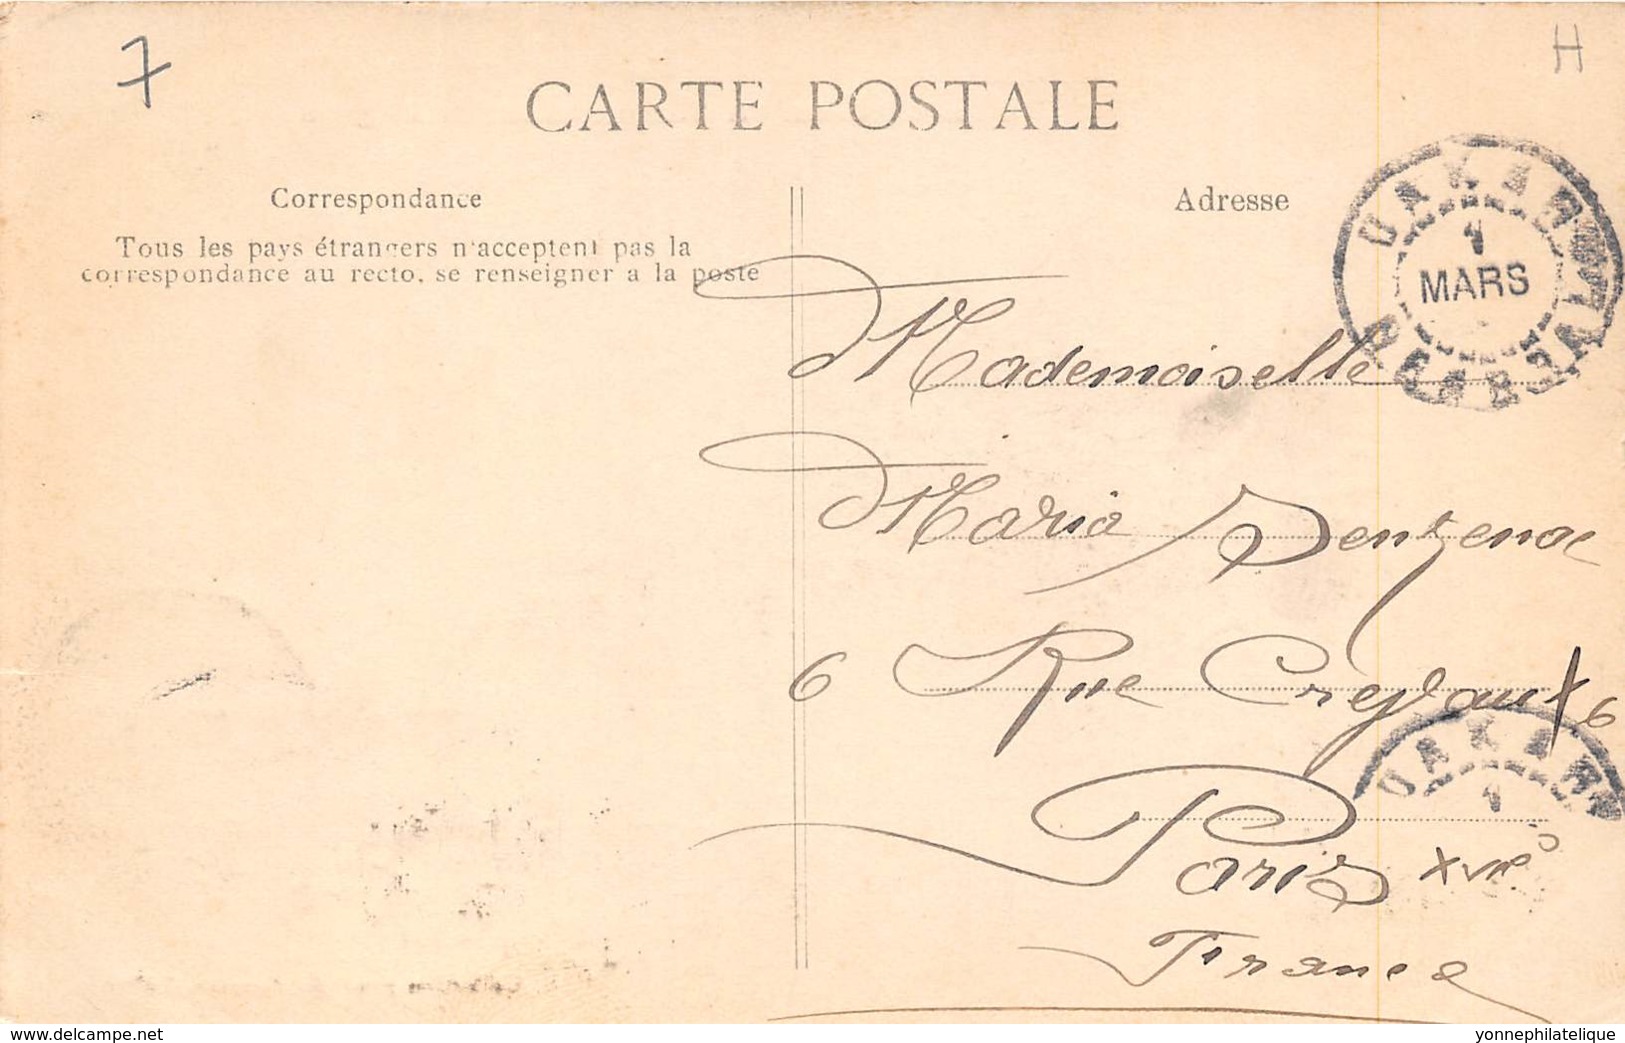 7
H
CARTE POSTALE
Correspondance
Adresse
Tous les pays étrangers n'acceptent pas la
correspondance au recto, se renseigner a la poste
DAKAR
1
MARS
Mademoiselle
Maria
6 Rue
DAKAR
1
Paris XVIIe
France
www.delcampe.net
yonnephilatelique